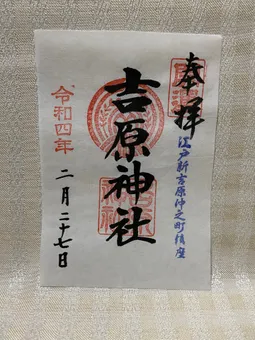 奉拝
江戸新吉原仲之町鎮座
吉原神社
令和四年
二月二十七日